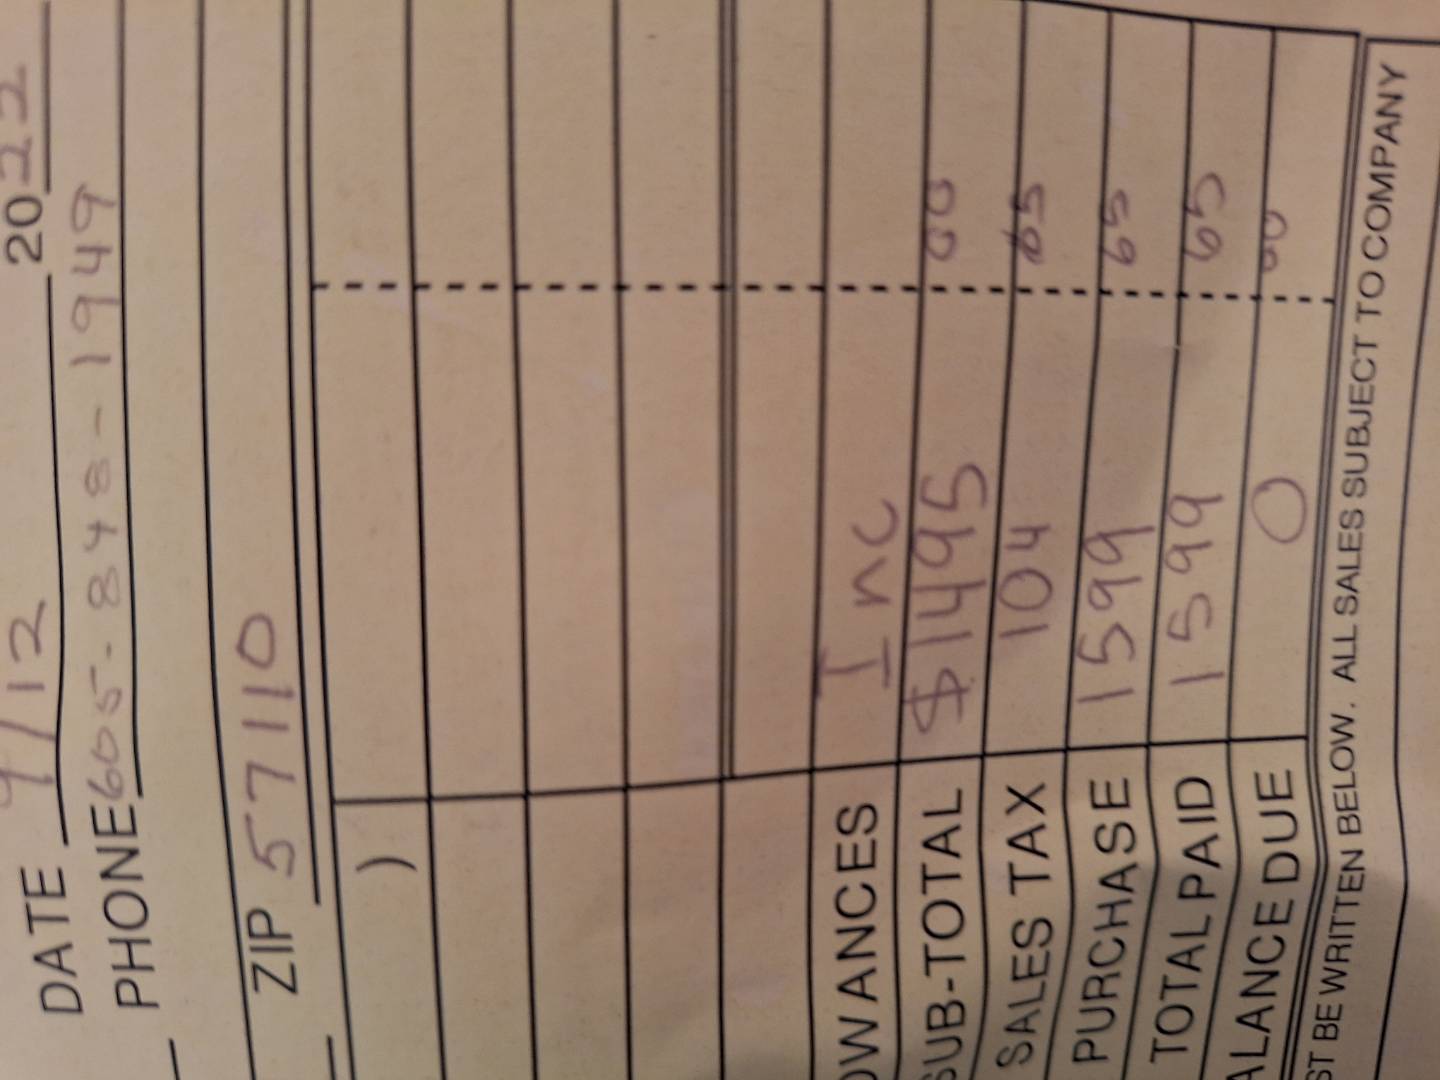 DATE 9/12 2022
PHONE 605-848-1949
ZIP 57110
)
OWANCES Inc
SUB-TOTAL $1495 00
SALES TAX 104 65
PURCHASE 1599 65
TOTAL PAID 1599 65
ALANCE DUE 0 00
ST BE WRITTEN BELOW. ALL SALES SUBJECT TO COMPANY